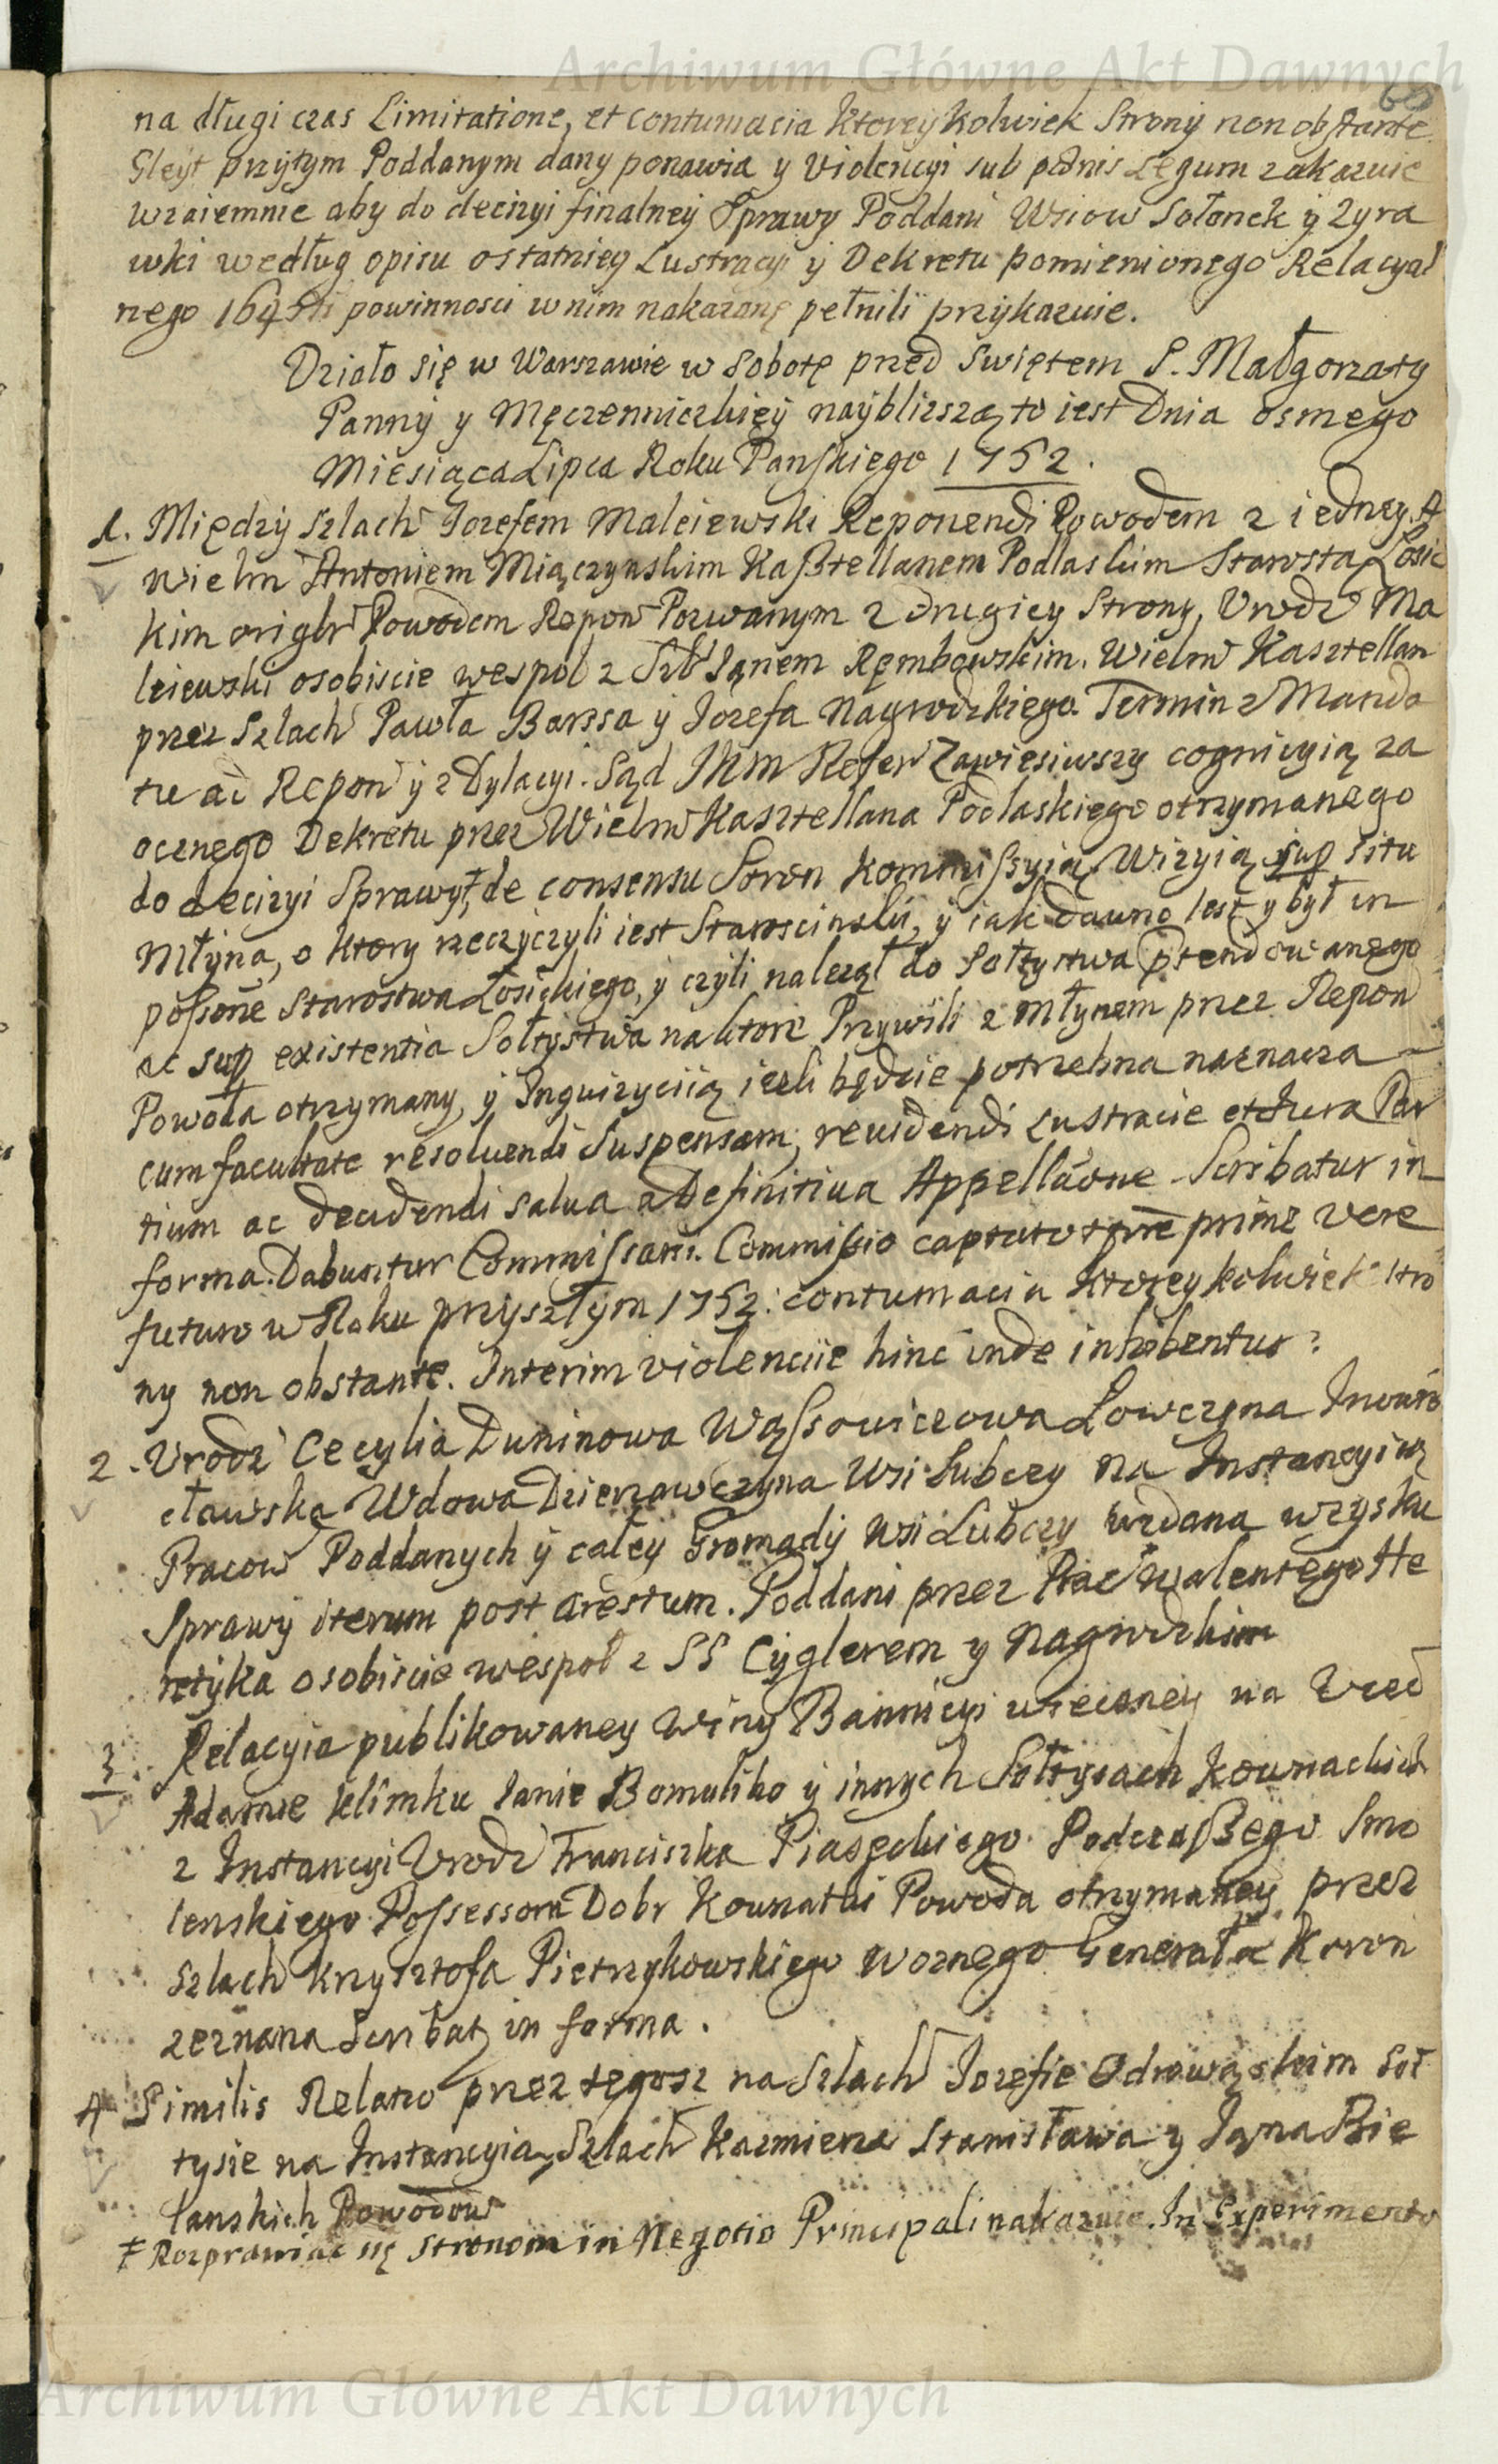 Archiwum Główne Akt Dawnych
na długi czas Limitatione, et contumacia ktorey kolwiek Strony non obstante
Gleyt przytym Poddanym dany ponawia y violencyi sub pœnis Legum zakazuie
wzaiemnie aby do decizyi finalney Sprawy Poddani Wsiow Sołonek y Zyra
wki według opisu ostatniey Lustracyi y Dekretu pomienionego Relacyal
nego powinnosci w nim nakazane pełnili przykazuie.
Działo się w Warszawie w Sobotę przed Swiętem S. Małgorzaty
Panny y Męczenniczkiey naybliszą to iest Dnia osmego
Miesiąca Lipca Roku Panskiego 1752.
1. Między Szlach Jozefem Maleiewski Reponendi Powodem z iedney. A
Wielm Antoniem Miączynskim Kasztellanem Podlaskim Starosta Łosic
kim origlr Powodem Repon Pozwanym z drugiey Strony, Urodz Ma
leiewski osobiscie wespoł z Szl Janem Rembowskim. Wielm Kasztellan
przez Szlach Pawła Barssa y Jozefa Nagrodzkiego. Termin z Manda
tu ad Repon y z Dylacyi. Sąd JKM Refer Zawiesiwszy cognicyią za
ocznego Dekretu przez Wielm Kasztellana Podlaskiego otrzymanego
do decizyi Sprawy ‡, de consensu Stron Kommissyią, Wizyią sup situ
Młyna, o ktory rzecz iczyli iest Staroscinski, y iak dawno iest y był in
possone Starostwa Łosickiego, y czyli nalezał do Sołtystwa ptendowanego
ac sup existentia Sołtystwa na ktore Przywili z Młynem przez Repon
Powoda otrzymany, y Inquizyciią iesli będzie potrzebna naznacza
cum facultate resoluendi Suspensam, reuidendi Lustracie et Jura Par
tium ac decidendi salua a Definitiua Appellaõne. Scribatur in
forma. Dabuntur Commissarii. Commissio captato tpre primo vere
futuro w Roku przyszłym 1752: contumacia ktoreykolwiek Stro
ny non obstante. Interim violenciie hinc inde inhibentur.
2. Urodz Cecylia Duninowa Wąssowiczowa Łowczyna Inowro
cławska Wdowa Dzierzawczyna Wsi Lubczy na Instancyią
Pracow Poddanych y całey Gromady wsi Lubczy wzdana w zysku
Sprawy iterum post arestum. Poddani przez Prac Walentego He
retyka osobiscie wespoł z SS Cyglerem y Nagrodzkim
3. Relacyia publikowaney Winy Bannicyi wieczney na Uczc
Adamie Klimku Janie Bomuliko y innych Sołtysach Kownackich
z Instancyi Urodz Franciszka Piaseckiego Podczaszego Smo
lenskiego Possessora Dobr Kownatki Powoda otrzymaney przez
Szlach Krzysztofa Pietrzykowskiego Woznego Generała Koron
zeznana Scribat in forma.
4 Similis Relatio przez tegosz na Szlach Jozefie Odrowąskim Soł
tysie na Instancyią Szlach Kazmierza Stanisława y Jana Bie
lanskich Powodow
‡ Rozprawiac się stronom in Negotio Principali nakazuie. In Experimento
Archiwum Główne Akt Dawnych